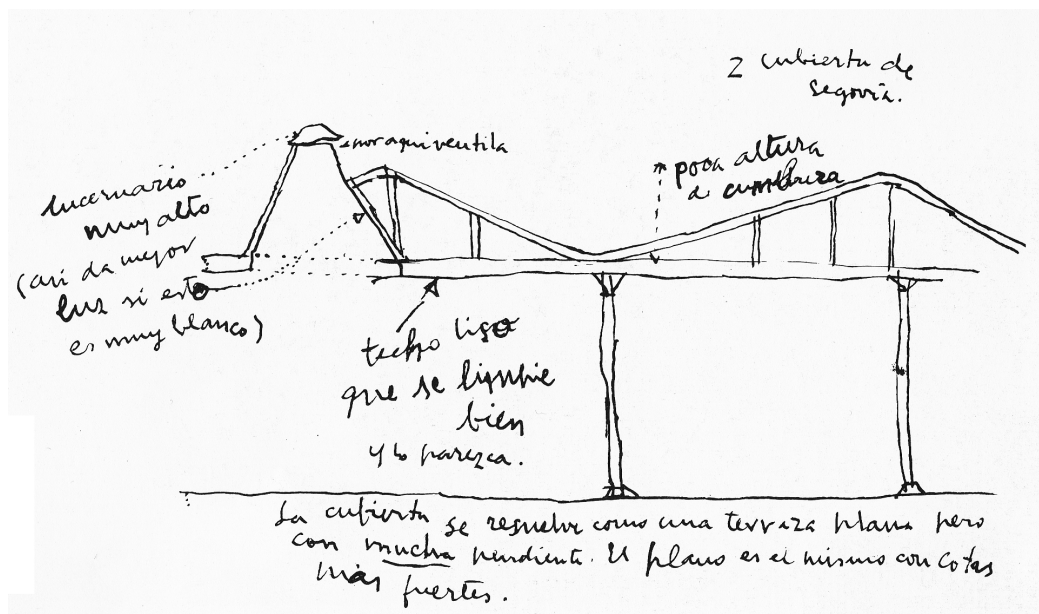 2 cubierta de
segovia.
por aqui ventila
lucernario
muy alto
(asi da mejor
luz si esto
es muy blanco)
poca altura
a cumbrera
techo liso
que se limpie
bien
y lo parezca.
La cubierta se resuelve como una terraza plana pero
con mucha pendiente. El plano es el mismo con cotas
más fuertes.